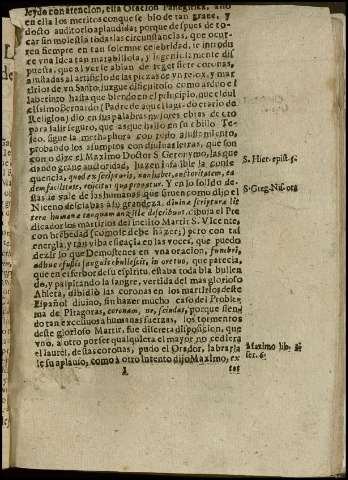 leydo con atencion, esta Oracion Panegirica, allo
en ella los meritos con que se bio de tan graue, y
docto auditorio aplaudida; porque despues de to-
car sin molestia todas las circunstancias, que ocur-
ren siempre en tan solemne celebridad, se introdu
ce vna Idea tan marabillosa, y ingeniosamente dis
puesta, que al verse abian de texer siete coronas,
imitadas al artificio de las piezas de vn relox, y mar
tirios de vn Santo, juzgue dispitolo como arduo el
laberinto hasta que biendo en el principio, que el dul
cissimo Bernardo (Padre de aquel sagrado erario de
Religion) dio en sus palabras mejores ebras de oro
para salir seguro, que las que hallò en su obillo Te-
seo. sigue la methaphora con todo ajustamiento,
probando los asumptos con diuinas letras, que son
como dize el Maximo Doctor S. Geronymo, las que
dando graue autoridad, hazen infalible la conse
quencia, quod ex scripturis, non habet authoritatem, ea
dem facilitate, reijcitur qua probatur. Y en lo solido de-
stas se vale de las humanas que siruen como dijo el
Niceno de esclabas à su grandeza. diuinæ scripturæ lit
teræ humanæ tanquam ancillæ deseribunt. cibora el Pre
dicador los martirios del inclito Martir S. Vicente,
con brebedad (como se debe hazer) pero con tal
energia, y tan viba eficacia en las voces, que puedo
dezir lo que Demostenes en vna oracion, funebri,
adhuc effussi sanguis ebullescit, in oretuo, que parecia,
que en el ferbor de su espiritu, estaba toda bia bullen
do, y palpitando la sangre, vertida del mas glorioso
Athleta, dibidiò las coronas en los martirios deste
Español diuino, sin hazer mucho caso del Proble-
ma de Pitagoras, coronam, ne, scindas, porque sien-
do tan excessiuos a humanas fuerzas, los tormentos
deste glorioso Martir, fue discreta disposicion, que
vno, a otro por ser qualquiera el mayor no cediera
el laurel, destas coronas, pudo el Orador, labrarla
de su aplauso, como à otro intento dijo Maximo, ex
A
tot
S. Hier. epist. 5.
S. Greg. Nis. ora
Maximo lib. 2.
ser. 6.